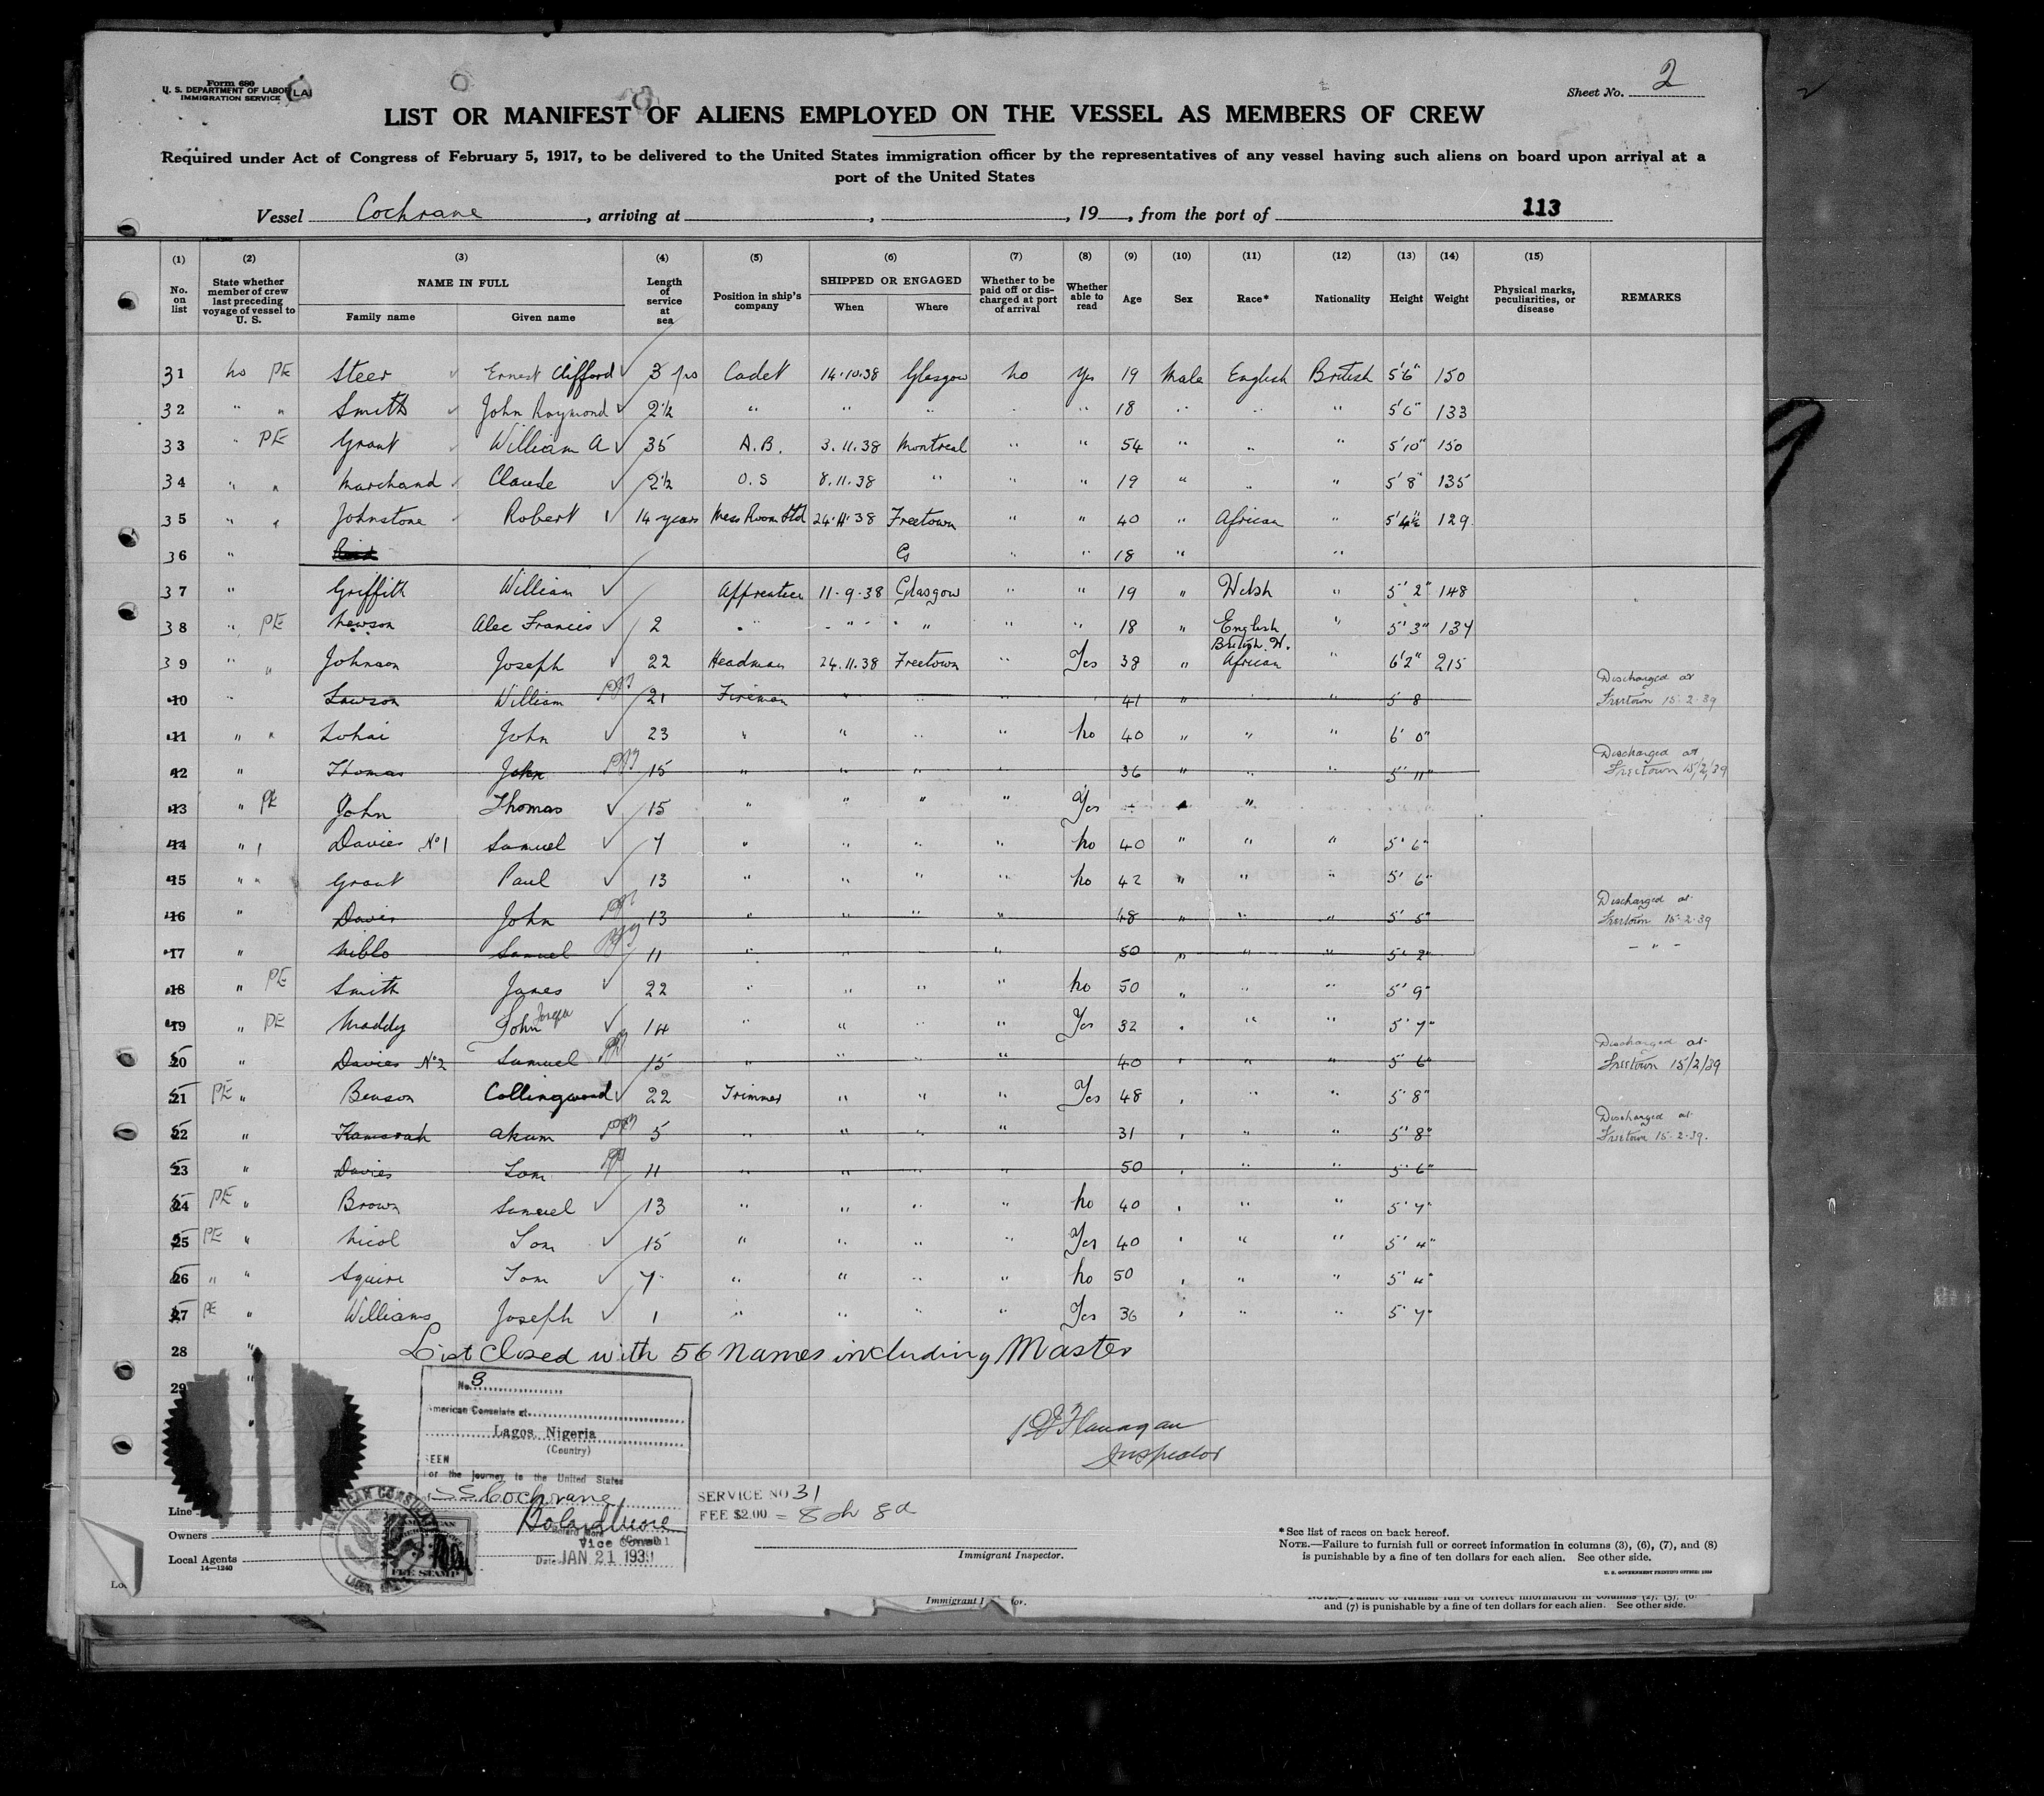 Form 680
U. S. DEPARTMENT OF LABOR
IMMIGRATION SERVICE
Sheet No. 2
LIST OR MANIFEST OF ALIENS EMPLOYED ON THE VESSEL AS MEMBERS OF CREW
Required under Act of Congress of February 5, 1917, to be delivered to the United States immigration officer by the representatives of any vessel having such aliens on board upon arrival at a
port of the United States
Vessel Cochrane, arriving at , , 19 , from the port of 113
(1) (2) (3) (4) (5) (6) (7) (8) (9) (10) (11) (12) (13) (14) (15)
No. on list
State whether member of crew last preceding voyage of vessel to U. S.
NAME IN FULL
Family name Given name
Length of service at sea
Position in ship's company
SHIPPED OR ENGAGED
When Where
Whether to be paid off or discharged at port of arrival
Whether able to read
Age Sex Race* Nationality Height Weight
Physical marks, peculiarities, or disease
REMARKS
31 no PE Steer Ernest Clifford 3 Cadet 14.10.38 Glasgow no Yes 19 Male English British 5'6" 150
32 " " Smith John Raymond 2½ " " " " " 18 " " " 5'6" 133
33 " PE Grant William A 35 A.B. 3.11.38 Montreal " " 54 " " " 5'10" 150
34 " " Marchand Claude 2½ O.S 8.11.38 " " " 19 " " " 5'8" 135
35 " " Johnstone Robert 14 years Mess Room Std 24.11.38 Freetown " " 40 " African " 5'4½ 129
36 " G " " 18 " "
37 " Griffith William Apprentice 11-9-38 Glasgow " " 19 " Welsh " 5'2" 148
38 " PE Newson Alec Francis 2 " " " " " 18 " English " 5'3" 134
39 " " Johnson Joseph 22 Headman 24.11.38 Freetown " Yes 38 " British W. African " 6'2" 215
10 " Lawson William 21 Fireman " " " 41 " " " 5 8 Discharged at Freetown 15-2-39
11 " " Lohai John 23 " " " " no 40 " " " 6' 0"
12 " Thomas John 15 " " " " 36 " " " 5' 11" Discharged at Freetown 15/2/39
13 " PE John Thomas 15 " " " " Yes " "
14 " " Davies No 1 Samuel 7 " " " " no 40 " " " 5' 6"
15 " " Grant Paul 13 " " " " no 42 " " " 5' 6"
16 " Davies John 13 " " " " 48 " " " 5' 5" Discharged at Freetown 15-2-39
17 " Niblo Samuel 11 " " " " 50 " " " 5' 2" - " -
18 " PE Smith James 22 " " " " no 50 " " " 5' 9"
19 " PE Maddy John Joseph 14 " " " " Yes 32 " " " 5' 7"
20 " Davies No 2 Samuel 15 " " " " 40 " " " 5' 6" Discharged at Freetown 15/2/39
21 PE " Benson Collingwood 22 Trimmer " " " Yes 48 " " " 5' 8"
22 " Kamarah akum 5 " " " " 31 " " " 5' 8" Discharged at Freetown 15-2-39.
23 " Davies Tom 11 " " " " 50 " " " 5' 6"
24 PE " Brown Samuel 13 " " " " no 40 " " " 5' 7"
25 PE " Nicol Tom 15 " " " " Yes 40 " " " 5' 4"
26 " " Squire Tom 7 " " " " no 50 " " " 5' 4"
27 PE " Williams Joseph 1 " " " " Yes 36 " " " 5' 7"
28 " List Closed with 56 names including Master
29 "
No. 3
American Consulate at
Lagos, Nigeria
(Country)
SEEN
For the journey to the United States
SS Cochrane
Vice Consul
Date JAN 21 1939
AMERICAN CONSULATE
FEE STAMP
SERVICE NO 31
FEE $2.00 = 8 sh 8d
Flanagan
Inspector
Line
Owners
Local Agents
14—1240
Immigrant Inspector.
*See list of races on back hereof.
NOTE.—Failure to furnish full or correct information in columns (3), (6), (7), and (8)
is punishable by a fine of ten dollars for each alien. See other side.
U. S. GOVERNMENT PRINTING OFFICE
and (7) is punishable by a fine of ten dollars for each alien. See other side.